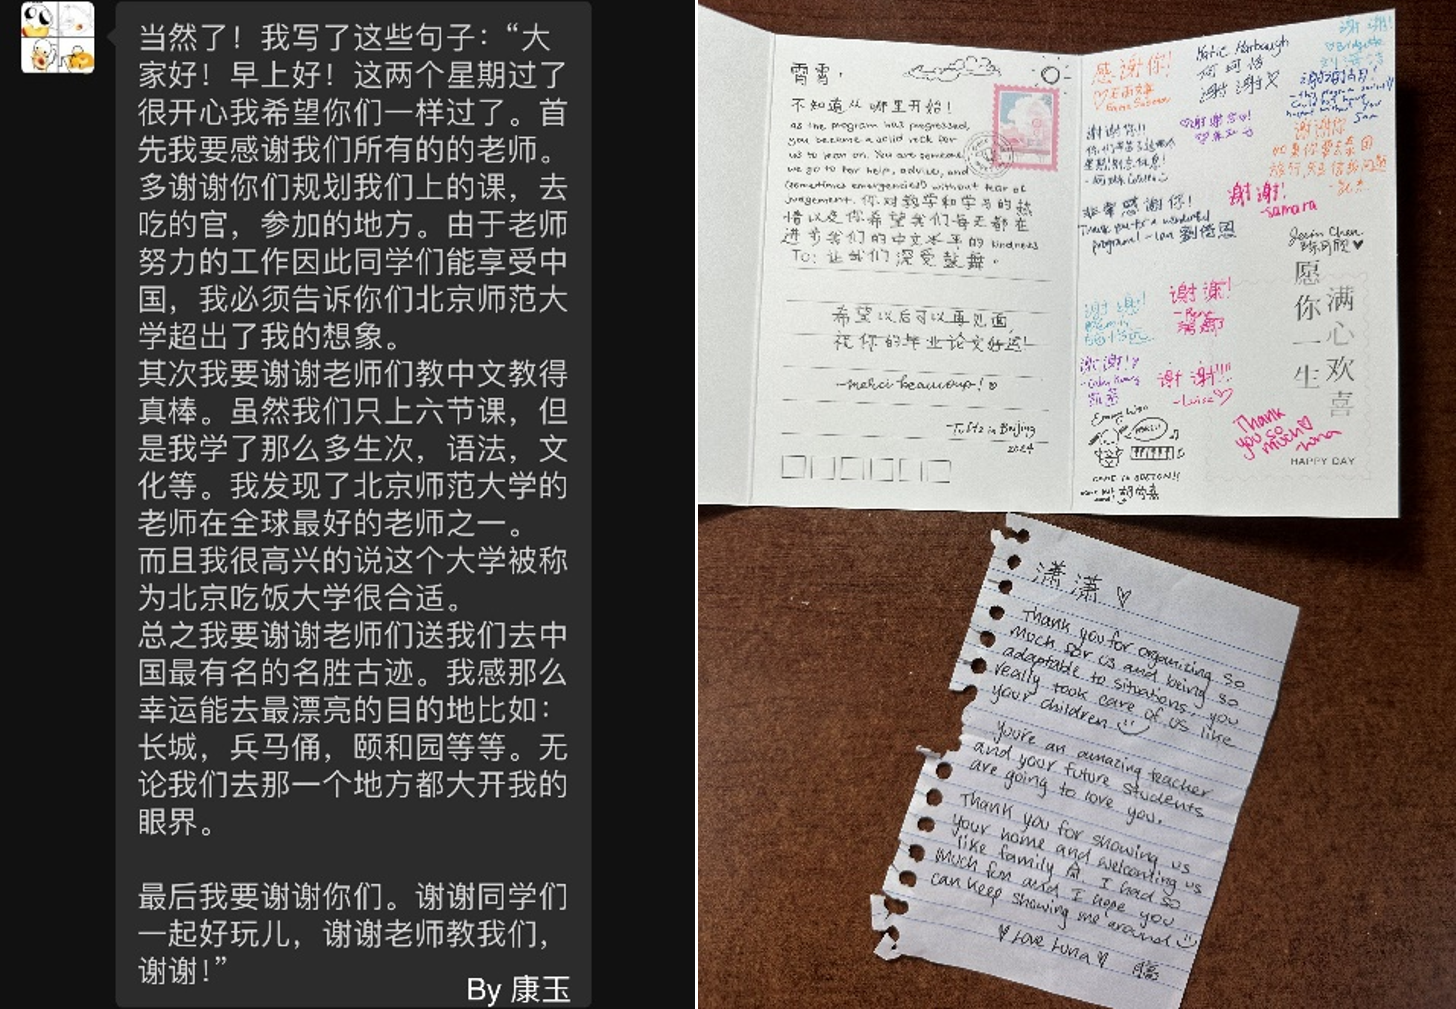 当然了！我写了这些句子：“大
家好！早上好！这两个星期过了
很开心我希望你们一样过了。首
先我要感谢我们所有的的老师。
多谢谢你们规划我们上的课，去
吃的官，参加的地方。由于老师
努力的工作因此同学们能享受中
国，我必须告诉你们北京师范大
学超出了我的想象。
其次我要谢谢老师们教中文教得
真棒。虽然我们只上六节课，但
是我学了那么多生次，语法，文
化等。我发现了北京师范大学的
老师在全球最好的老师之一。
而且我很高兴的说这个大学被称
为北京吃饭大学很合适。
总之我要谢谢老师们送我们去中
国最有名的名胜古迹。我感那么
幸运能去最漂亮的目的地比如：
长城，兵马俑，颐和园等等。无
论我们去那一个地方都大开我的
眼界。
最后我要谢谢你们。谢谢同学们
一起好玩儿，谢谢老师教我们，
谢谢！”
By 康玉
霄霄，
不知道从哪里开始！
As the program has progressed,
you became a solid rock for
us to lean on. You are someone
we go to for help, advice, and
(sometimes emergencies) without fear of
judgement. 你对教学和学习的热
情以及你希望我们每天都在
进步我们的中文水平的 kindness
To: 让我们深受鼓舞。
希望以后可以再见面，
祝你的毕业论文好运！
-merci beaucoup!
-Tufts in Beijing
2024
感谢你！
Katie Harbaugh
何珂怡
谢谢
谢谢！
Bridgette
谢谢你！
-this program
could not have
happened without your
Sam
谢谢你!!
谢谢您！
谢谢你
如果你要去泰国
旅行，
谢谢！
-Samara
非常感谢你！
Thank you for a wonderful
program! -Ian 劉偉恩
Jevin Chen
谢谢！
谢谢！
谢谢！
谢谢!!!
-Luisa
Emma Wien
COME TO BOSTON!!
Thank
you so
much
Luna
愿你一生
满心欢喜
HAPPY DAY
潇潇
Thank you for organizing so
much for us and being so
adaptable to situations, you
really took care of us like
your children
you're an amazing teacher
and your future students
are going to love you.
Thank you for showing us
your home and welcoming us
like family I had so
much fun and I hope you
can keep showing me around
Love Luna